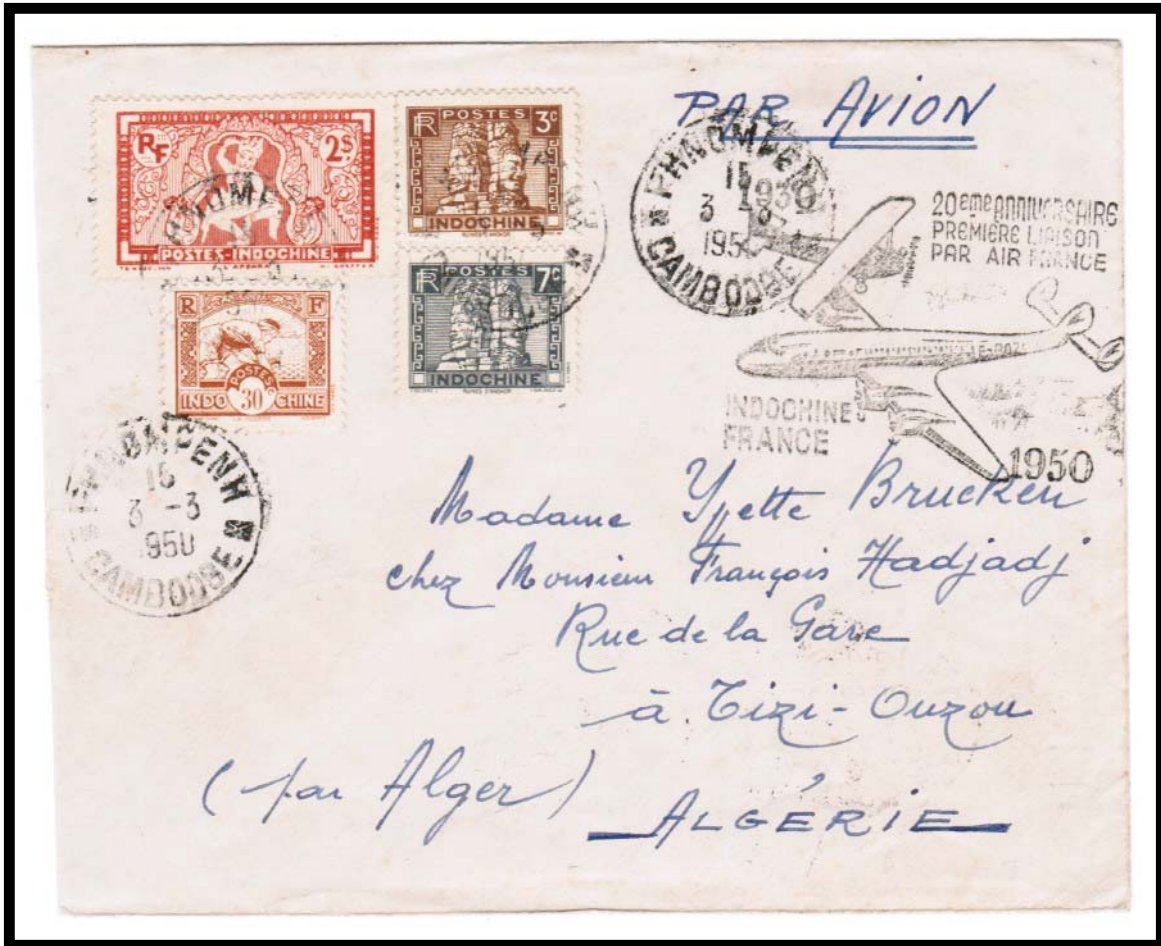 PAR AVION
RF 2$
POSTES-INDOCHINE
RF POSTES 3c
INDOCHINE
RF POSTES 7c
INDOCHINE
R F
POSTES
INDO 30 CHINE
PHNOMPENH
15
3 -3
1950
CAMBODGE
1930
20eme ANNIVERSAIRE
PREMIÈRE LIAISON
PAR AIR FRANCE
INDOCHINE
FRANCE
1950
PHNOMPENH
15
3 -3
1950
CAMBODGE
Madame Yvette Brucken
chez Monsieur François Hadjadj
Rue de la Gare
à Tizi-Ouzou
(par Alger)
ALGÉRIE